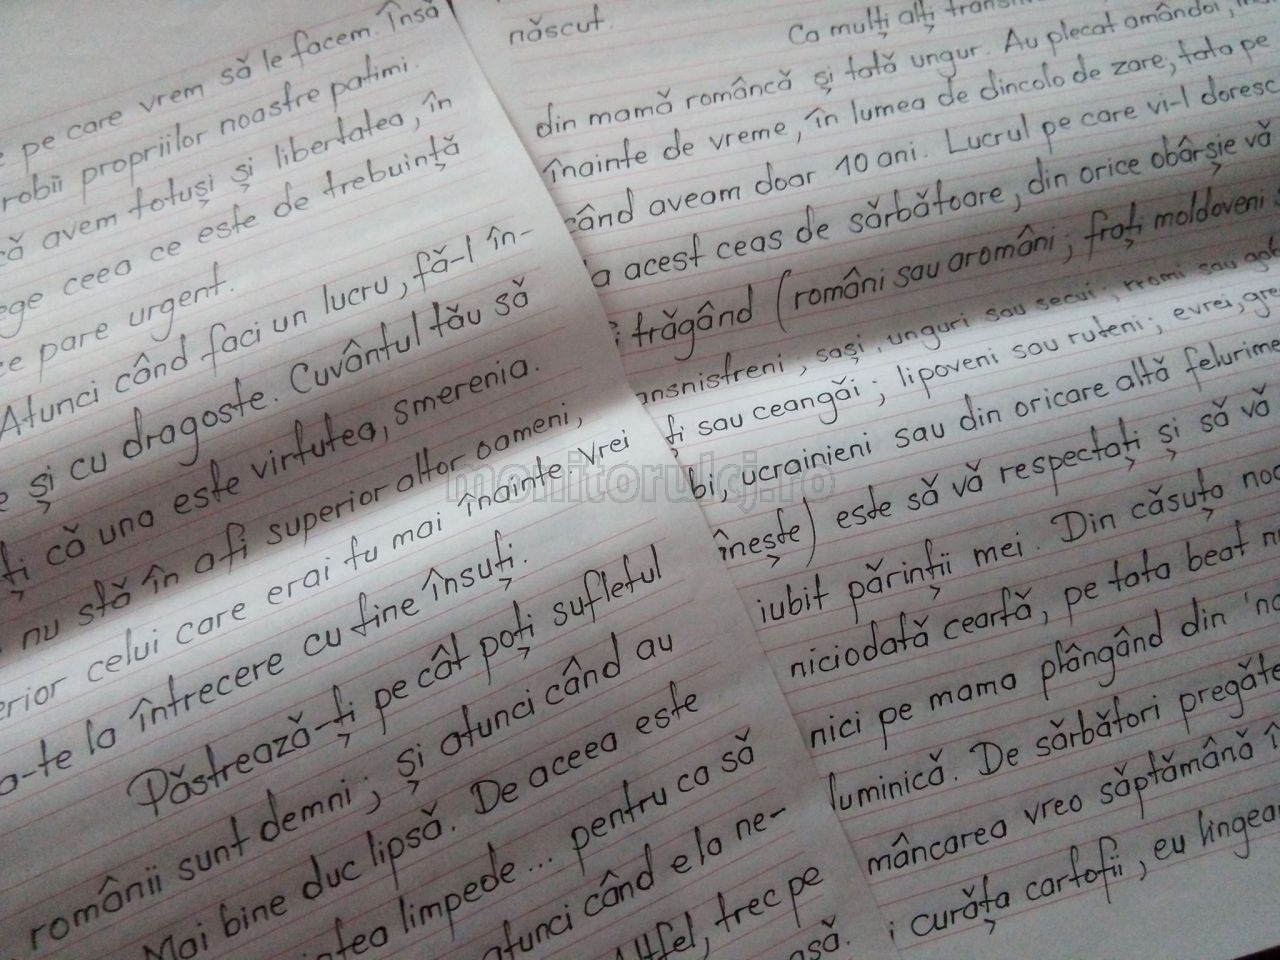 pe care vrem să le facem. Însă
robii propriilor noastre patimi.
că avem totuși și libertatea, în
ege ceea ce este de trebuință
ce pare urgent.
Atunci când faci un lucru, fă-l în-
e și cu dragoste. Cuvântul tău să
ți că una este virtutea, smerenia.
nu stă în a fi superior altor oameni,
erior celui care erai tu mai înainte. Vrei
a-te la întrecere cu tine însuți.
Păstrează-ți pe cât poți sufletul
românii sunt demni; și atunci când au
Mai bine duc lipsă. De aceea este
tea limpede... pentru ca să
atunci când e la ne-
Altfel, trec pe
asă.
născut.
Ca mulți alți transi
din mamă româncă și tată ungur. Au plecat amândoi,
înainte de vreme, în lumea de dincolo de zare, tata pe
când aveam doar 10 ani. Lucrul pe care vi-l doresc
a acest ceas de sărbătoare, din orice obârșie vă
trăgând (români sau aromâni; frați moldoveni
ansnistreni; sași, unguri sau secui; rromi sau
ți sau ceangăi; lipoveni sau ruteni; evrei, gre
bi, ucrainieni sau din oricare altă felurime
înește) este să vă respectați și să vă
iubit părinții mei. Din căsuța noa
niciodată ceartă, pe tata beat n
nici pe mama plângând din
luminică. De sărbători pregăte
mâncarea vreo săptămână î
i curăța cartofii, eu lingea
monitorulcj.ro